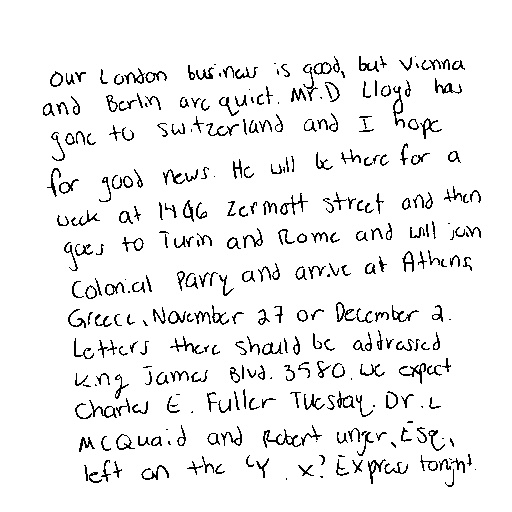 Our London business is good, but Vienna
and Berlin are quiet. Mr. D Lloyd has
gone to Switzerland and I hope
for good news. He will be there for a
week at 1496 Zermott street and then
goes to Turin and Rome and will join
Colonial Parry and arrive at Athens,
Greece, November 27 or December 2.
Letters there should be addressed
King James Blvd. 3580. We expect
Charles E. Fuller Tuesday. Dr. L
McQuaid and Robert unger, Esq.,
left on the "Y. X." Express tonight.